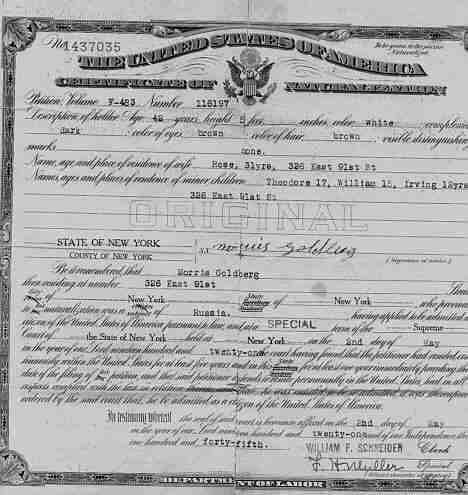 No. 1437035
To be given to the person Naturalized.
THE UNITED STATES OF AMERICA
CERTIFICATE OF NATURALIZATION
Petition, Volume F-483 Number 118197
Description of holder: Age, 42 years; height, 5 feet, inches; color, white; complexion,
dark; color of eyes, brown; color of hair, brown; visible distinguishing
marks, none.
Name, age and place of residence of wife Rose, 31yrs, 326 East 91st St
Names, ages and places of residence of minor children Theodore 17, William 15, Irving 12yrs
326 East 91st St
ORIGINAL
STATE OF NEW YORK
COUNTY OF NEW YORK
s.s. Morris Goldberg
(Signature of holder)
Be it remembered, that Morris Goldberg
then residing at number 326 East 91st
of New York State of New York, who previous
to naturalization was a subject of Russia, having applied to be admitted a
citizen of the United States of America pursuant to law, and at a SPECIAL term of the Supreme
Court of the State of New York held at New York on the 2nd day of May
in the year of our Lord nineteen hundred and twenty-one the court having found that the petitioner had resided con-
tinuously within the United States for at least five years and in this State for at least one year immediately preceding
the date of the filing of petition, and that said petitioner intends to reside permanently in the United States, had in all
respects complied with the law in relation thereto, and that he was entitled to be so admitted, it was thereupon
ordered by the said court that he be admitted as a citizen of the United States of America.
In testimony whereof the seal of said court is hereunto affixed on the 2nd day of May
in the year of our Lord nineteen hundred and twenty-one and of our Independence the
one hundred and forty-fifth.
WILLIAM F. SCHNEIDER Clerk
Special
DEPARTMENT OF LABOR